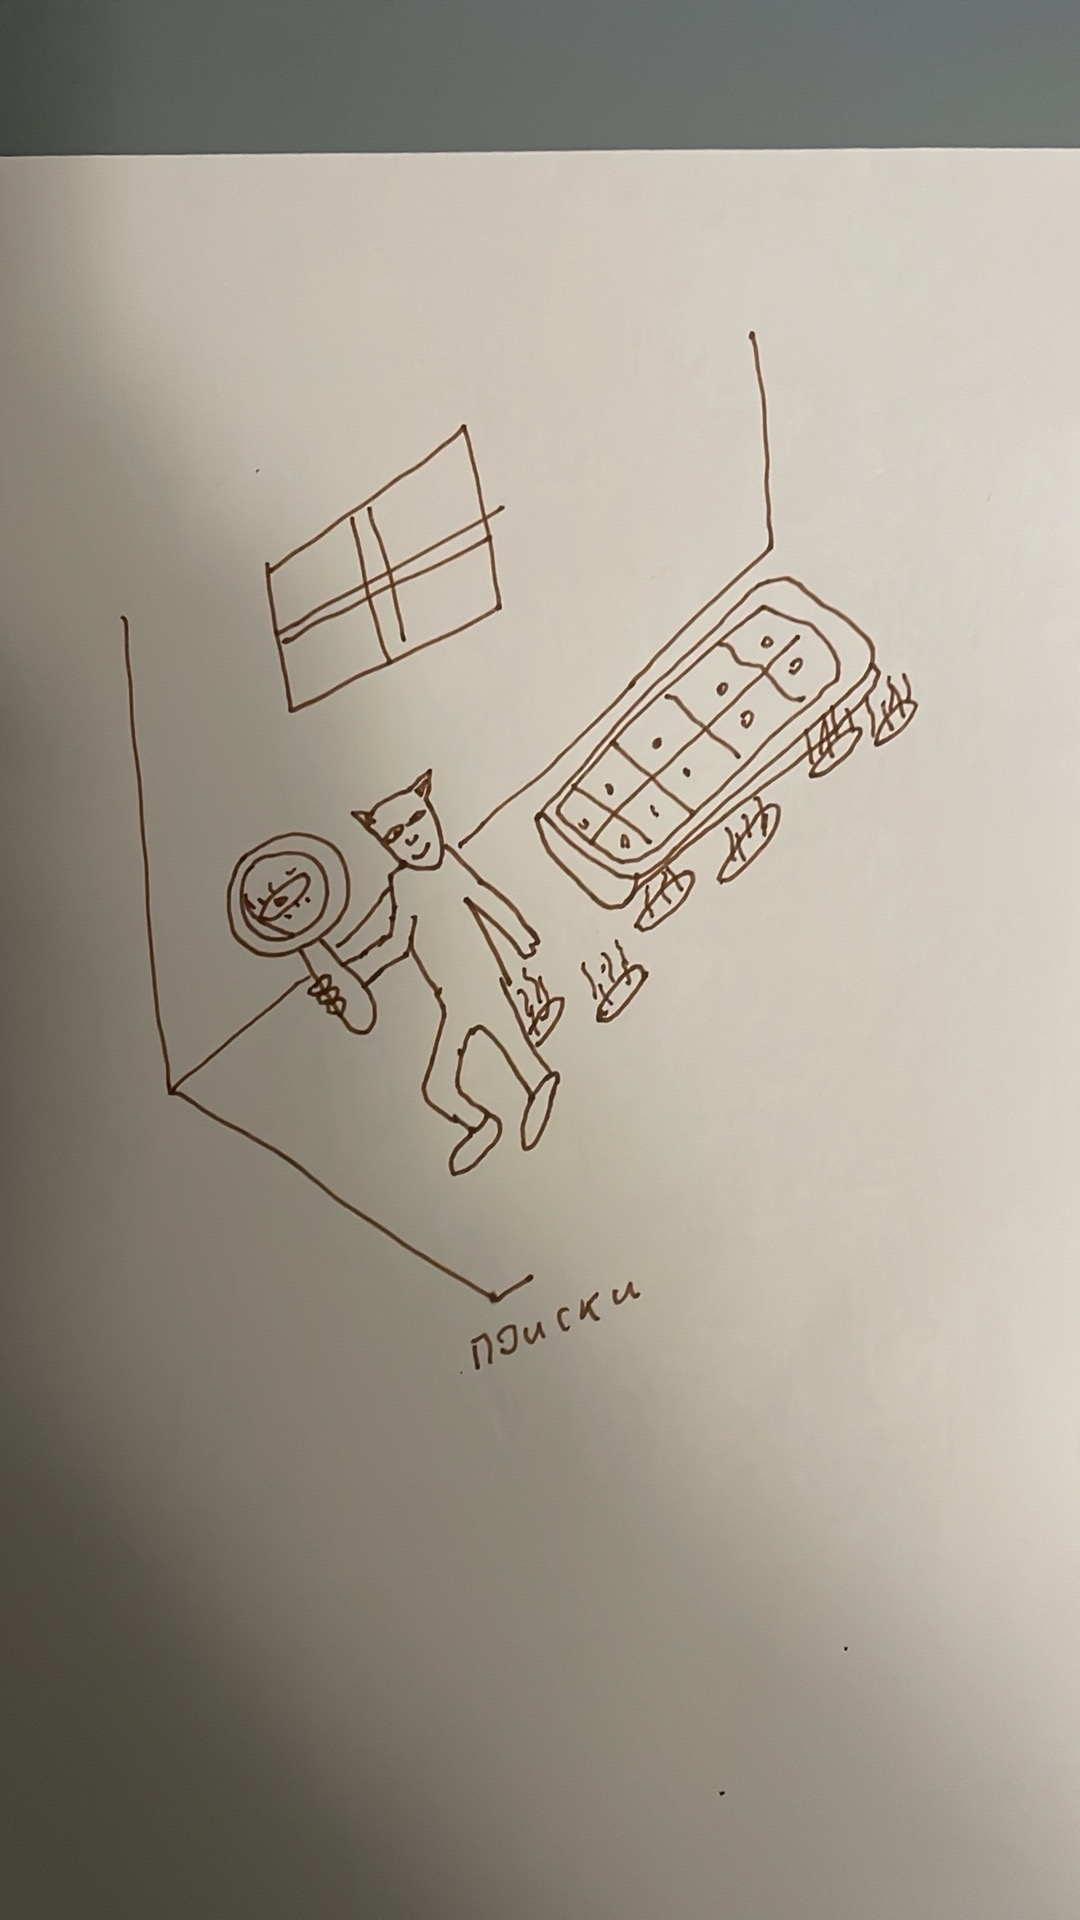 поиски